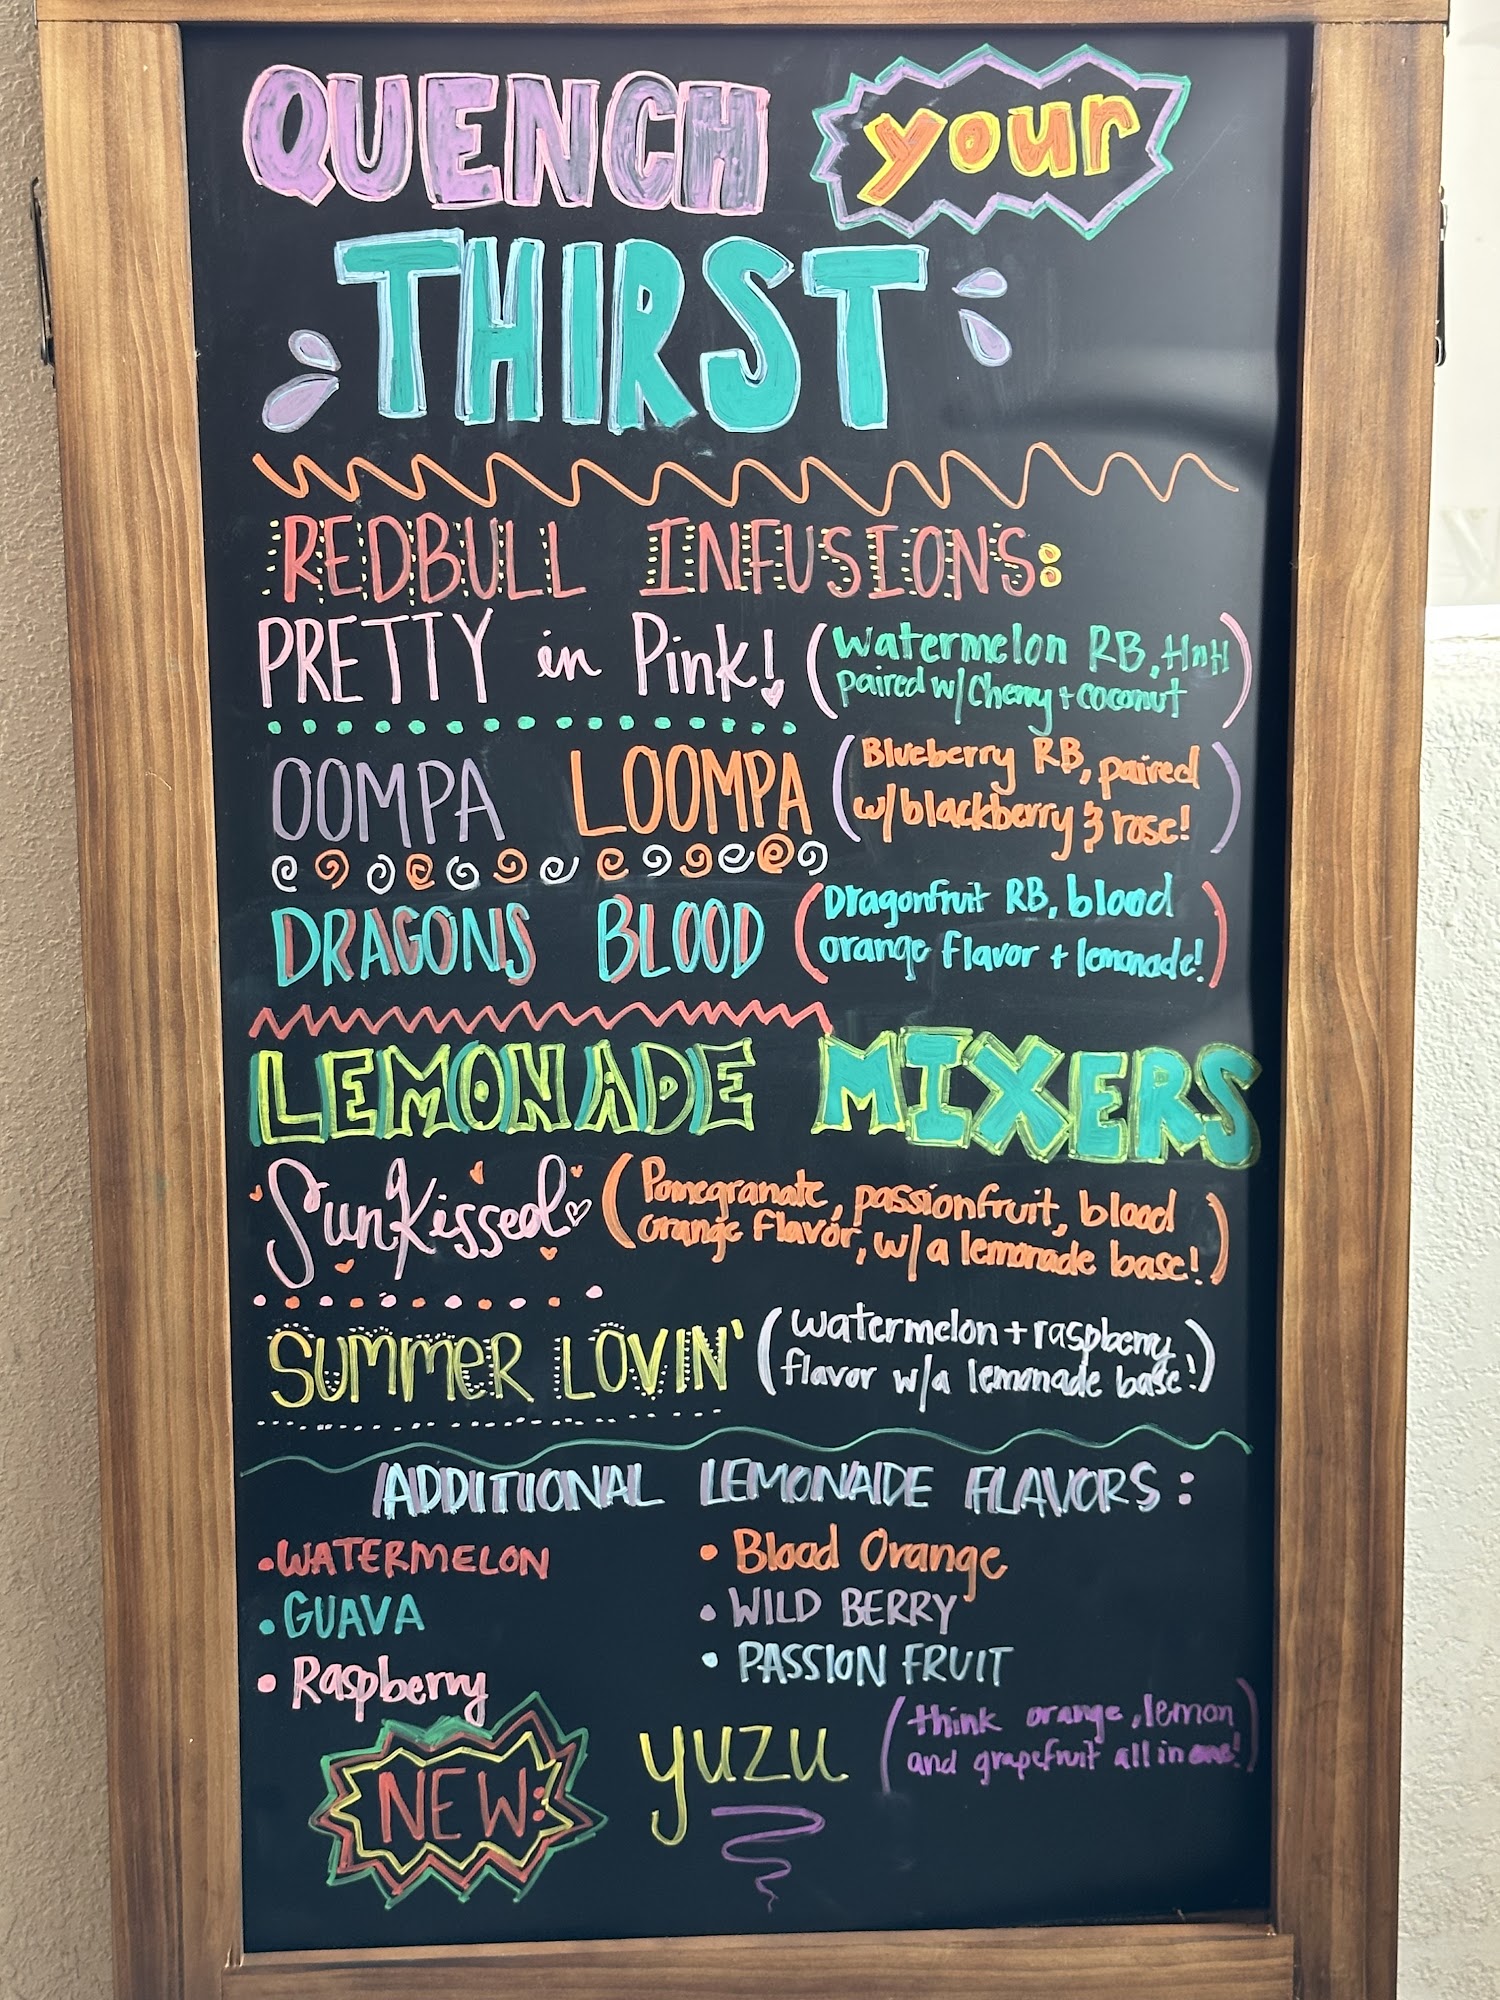 QUENCH your
THIRST
REDBULL INFUSIONS:
PRETTY in Pink! (Watermelon RB, HnH
paired w/ Cherry + coconut)
OOMPA LOOMPA (Blueberry RB, paired
w/ blackberry & rose!)
DRAGONS BLOOD (Dragonfruit RB, blood
orange flavor + lemonade!)
LEMONADE MIXERS
SunKissed (Pomegranate, passionfruit, blood
orange flavor, w/ a lemonade base!)
SUMMER LOVIN' (Watermelon + raspberry
flavor w/a lemonade base!)
ADDITIONAL LEMONADE FLAVORS:
• WATERMELON
• GUAVA
• Raspberry
• Blood Orange
• WILD BERRY
• PASSION FRUIT
NEW: yuzu (think orange, lemon
and grapefruit all in one!)